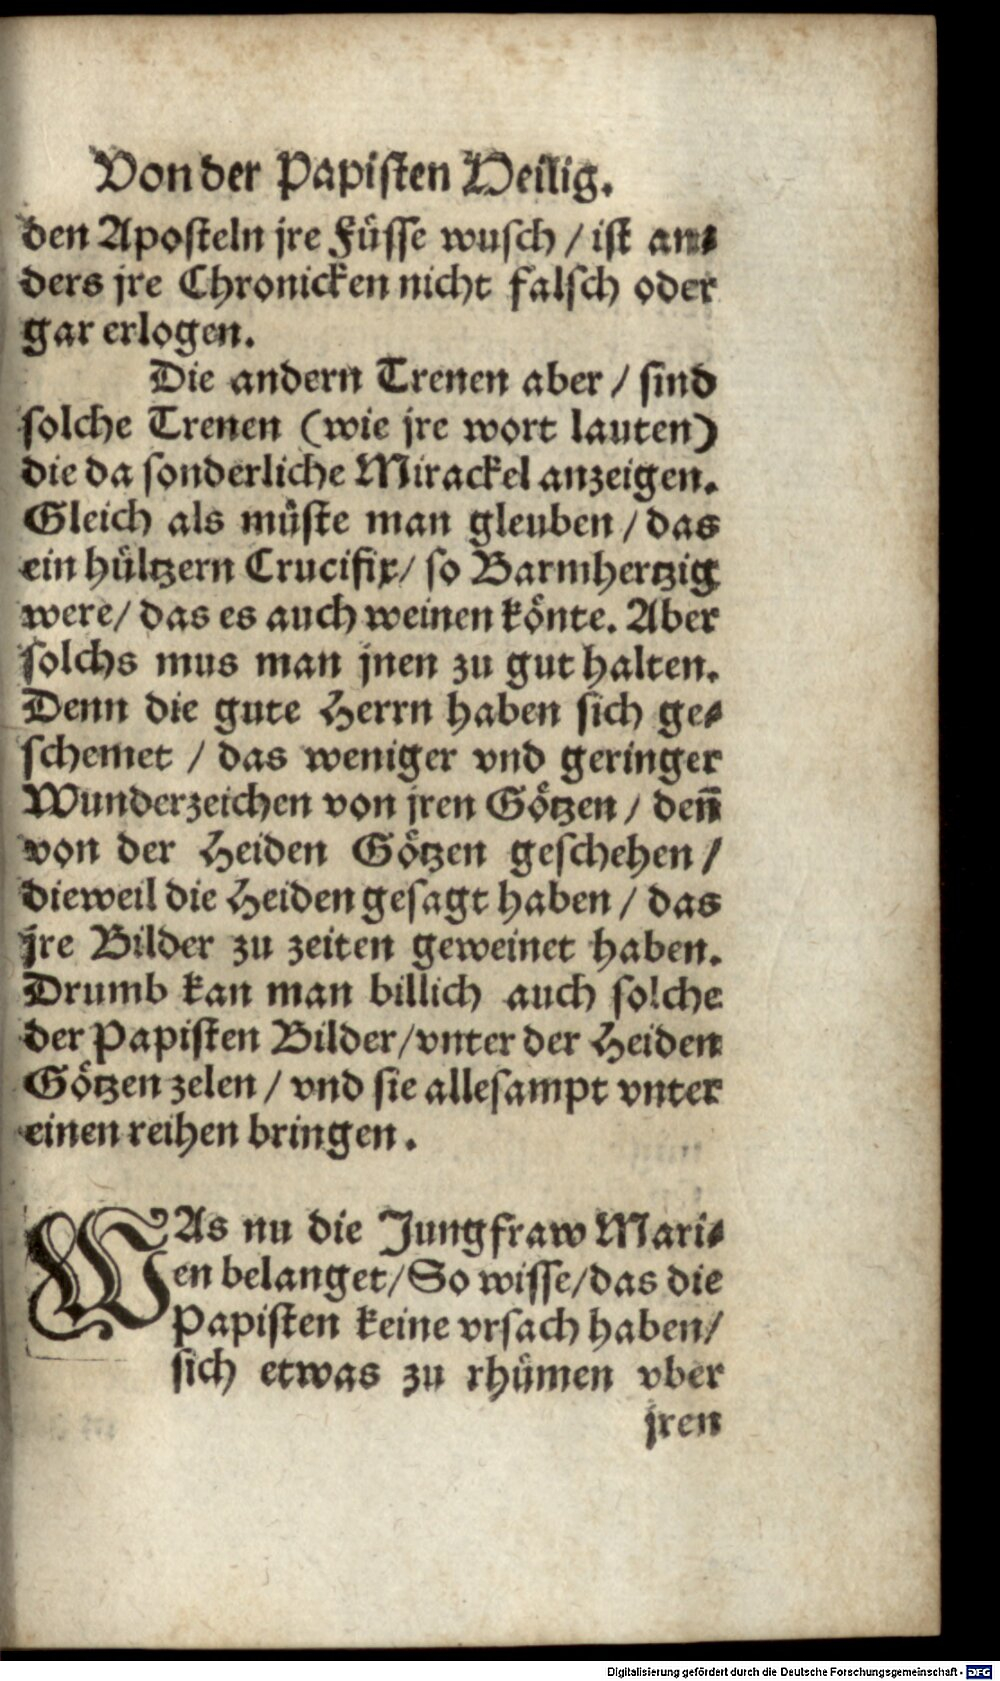 Von der Papisten Heilig.
den Aposteln jre Füsse wusch / ist an⸗
ders jre Chronicken nicht falsch oder
gar erlogen.
Die andern Trenen aber / sind
solche Trenen (wie jre wort lauten)
die da sonderliche Mirackel anzeigen.
Gleich als müste man gleuben / das
ein hültzern Crucifix / so Barmhertzig
were / das es auch weinen könte. Aber
solchs mus man jnen zu gut halten.
Denn die gute Herrn haben sich ge⸗
schemet / das weniger vnd geringer
Wunderzeichen von jren Götzen / den̄
von der Heiden Götzen geschehen /
dieweil die Heiden gesagt haben / das
jre Bilder zu zeiten geweinet haben.
Drumb kan man billich auch solche
der Papisten Bilder / vnter der Heiden
Götzen zelen / vnd sie allesampt vnter
einen reihen bringen.
WAs nu die Jungfraw Mari⸗
en belanget / So wisse / das die
Papisten keine vrsach haben /
sich etwas zu rhümen vber
jren
Digitalisierung gefördert durch die Deutsche Forschungsgemeinschaft - DFG